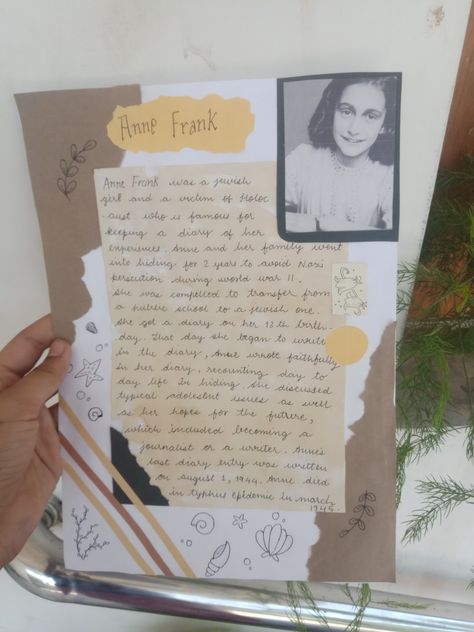 Anne Frank
Anne Frank was a jewish
girl and a victim of Holoc
aust who is famous for
keeping a diary of her
experiences. Anne and her family went
into hiding for 2 years to avoid Nazi
persecution during world war II.
She was compelled to transfer from
a public school to a jewish one.
She got a diary on her 13th birth-
day. That day she began to write
in the diary, Anne wrote faithfully
in her diary, recounting day to
day life in hiding. She discussed
typical adolesbent issues as well
as her hopes for the future,
which included becoming a
journalist or a writer. Anne's
last diary entry was written
on august 1, 1944. Anne died
in typhus epidemic in march,
1945.